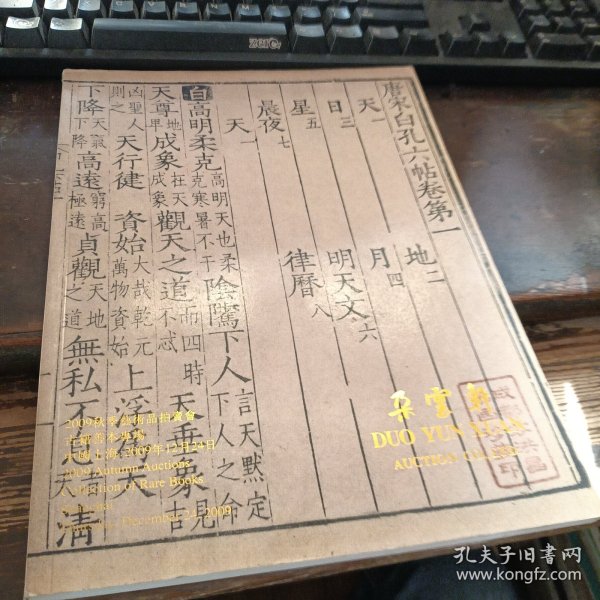 唐宋白孔六帖卷第一
天一 地二
日三 月四
星五 明天文六
晨夜七 律曆八
天一
白高明柔克 高明天也柔克寒暑不干 陰騭下人 言天默定下人之命
天尊 地卑 成象 在天成象 觀天之道 不忒 而四時 天垂象 見吉
凶聖人則之 天行健 資始 大哉乾元萬物資始 上
下降 天氣下降 高遠 窮高極遠 貞觀 天地之道 無私 清
朵雲軒
DUO YUN XUAN
AUCTION CO., LTD
2009秋季藝術品拍賣會
古籍善本專場
中國上海 2009年12月24日
2009 Autumn Auctions
Collection of Rare Books
December 24, 2009
Zore
孔夫子旧书网
www.kongfz.com